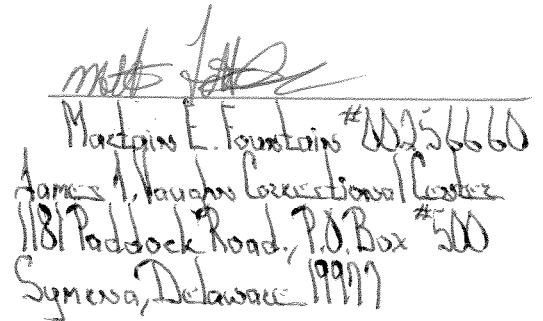 E. Fountain #00256660
James T. Vaughn Correctional Center
1181 Paddock Road., P.O. Box #500
Smyrna, Delaware 19977